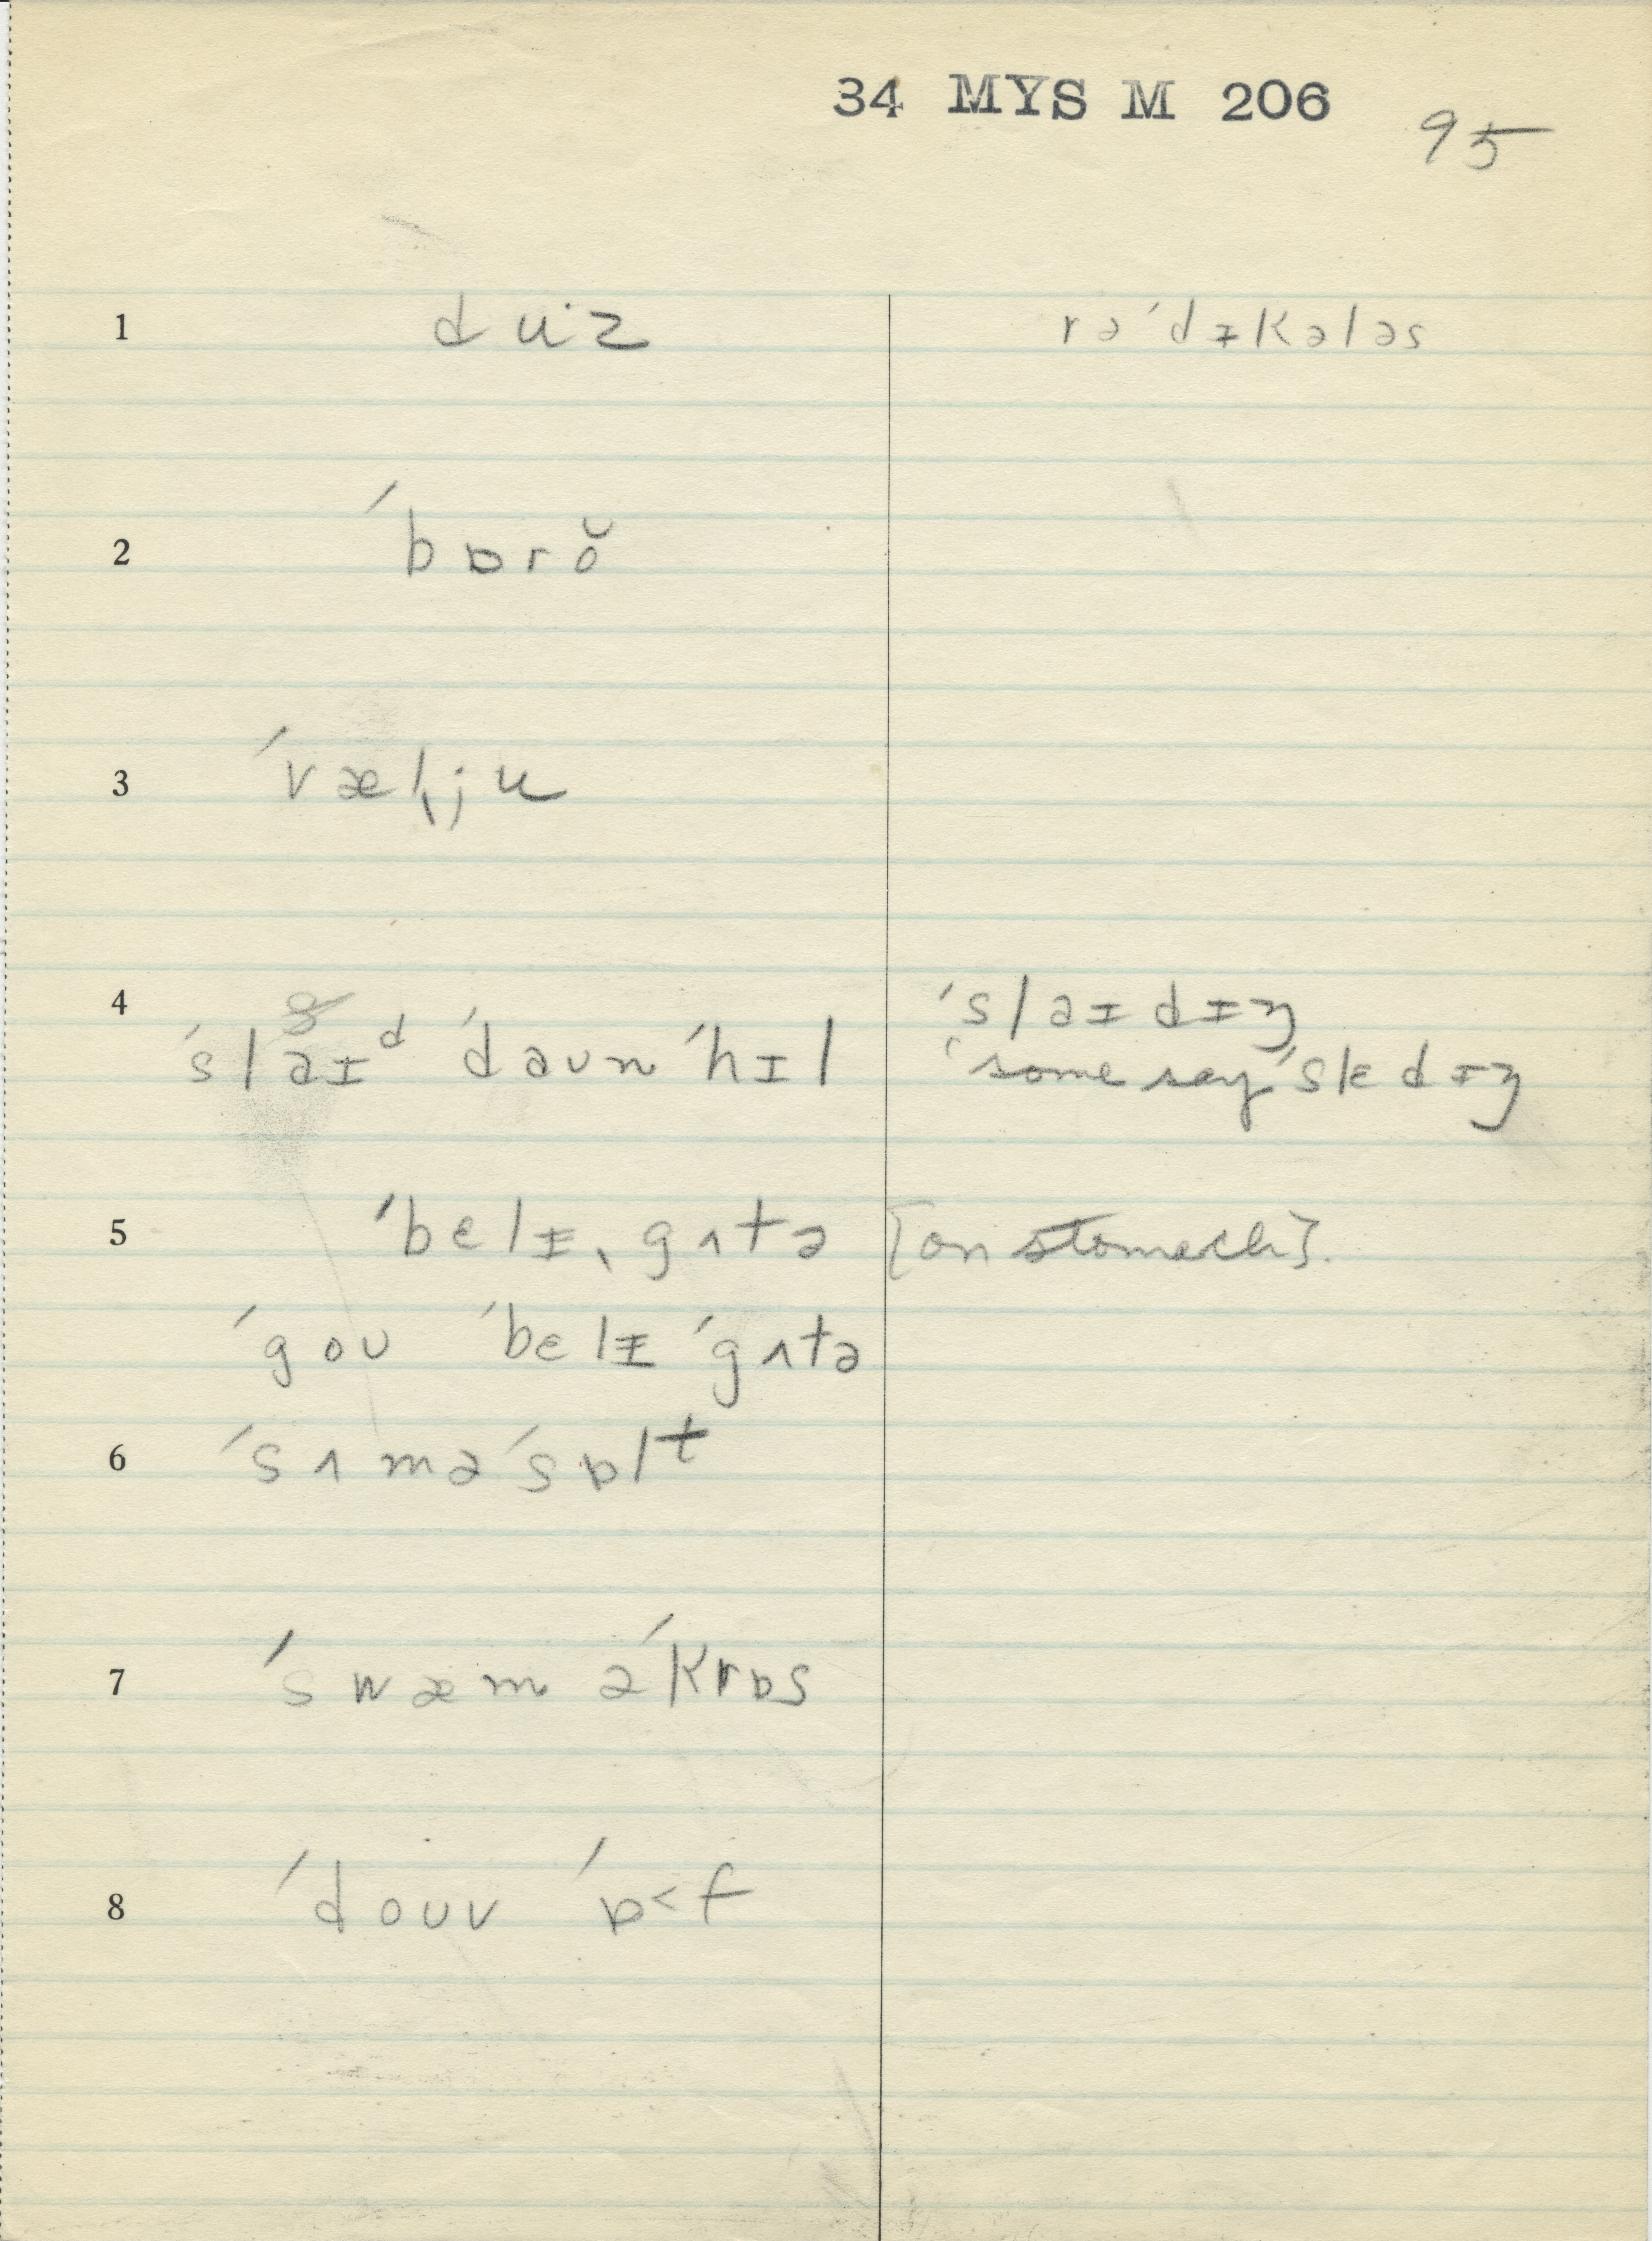 34 MYS M 206
95
1 du·z rə´dᵻkələs
2 ´bɒrŏ
3 ´væl̡ju
4 ´slaɪᵈ ´daʊn ´hɪl ´slaɪdɪŋ
'some say' slɛdɪŋ
5 ´bɛlᵻˎgʌtə [on stomach].
´goʊ ´bɛlᵻ ´gʌtə
6 ´sʌmə´sɒlᵗ
7 ´swæm ə´krɒs
8 ´doʊv ´ɒ˂f